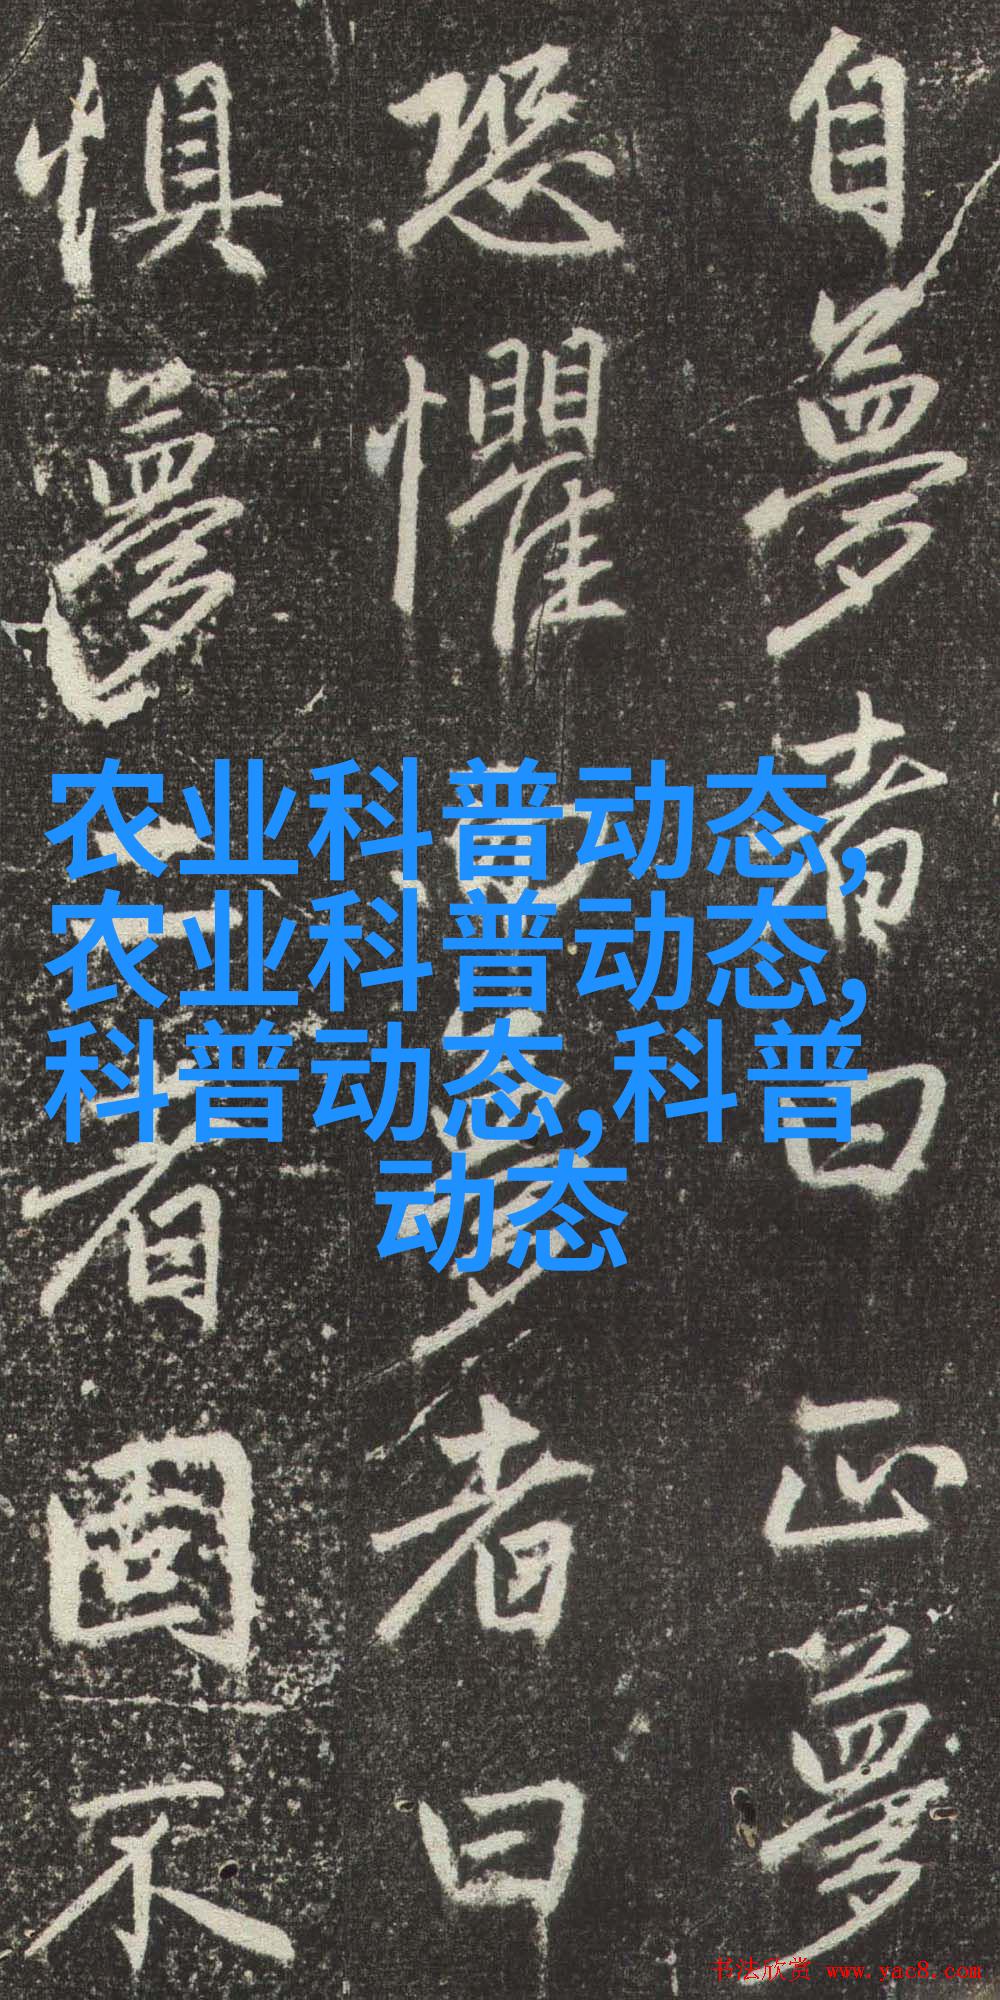 自夢者曰正夢
恐懼夢者曰
惧夢二者固不
农业科普动态,
农业科普动态,
科普动态,科普
动态
书法欣赏 www.yac8.com